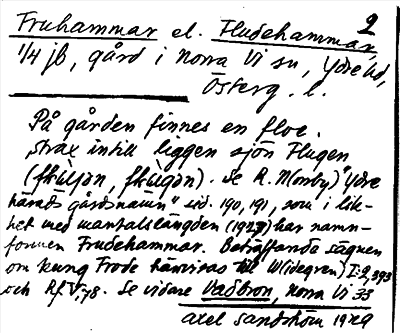 2
Fruhammar el. Fludehammar,
1/4 jb, gård i Norra Vi sn, Ydre hd,
Österg. l.
På gården finnes en floe.
strax intill liggen sjön Flugen
Se R. M(orby) "Ydre
härads gårdsnamn" sid. 190, 191, som i lik-
het med mantalslängden (1927) har namn-
formen Frudehammar. Beträffande sägnen
om kung Frode hänvisas till W(idegren) I:2, 393
och Rf V, 78. Se vidare Vadbron, Norra Vi 33
Axel Sandström 1929